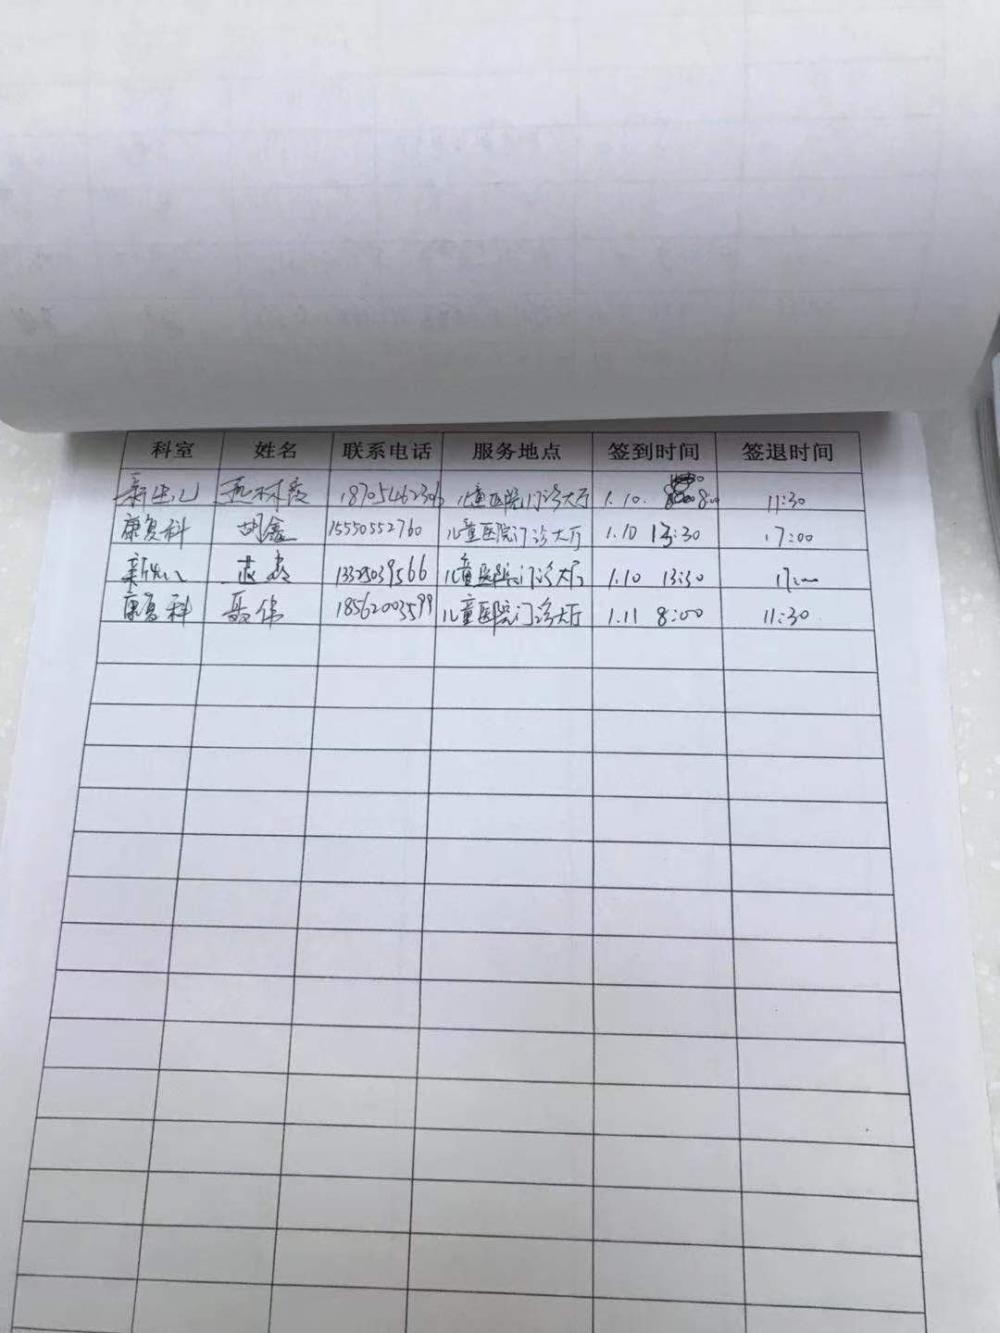 科室 姓名 联系电话 服务地点 签到时间 签退时间
新生儿 18705462306 儿童医院门诊大厅 1.10. 8:00 11:30
康复科 胡鑫 15550552760 儿童医院门诊大厅 1.10 13:30 17:00
新生儿 儿童医院门诊大厅 1.10 13:30 17:00
康复科 聂伟 18562003599 儿童医院门诊大厅 1.11 8:00 11:30